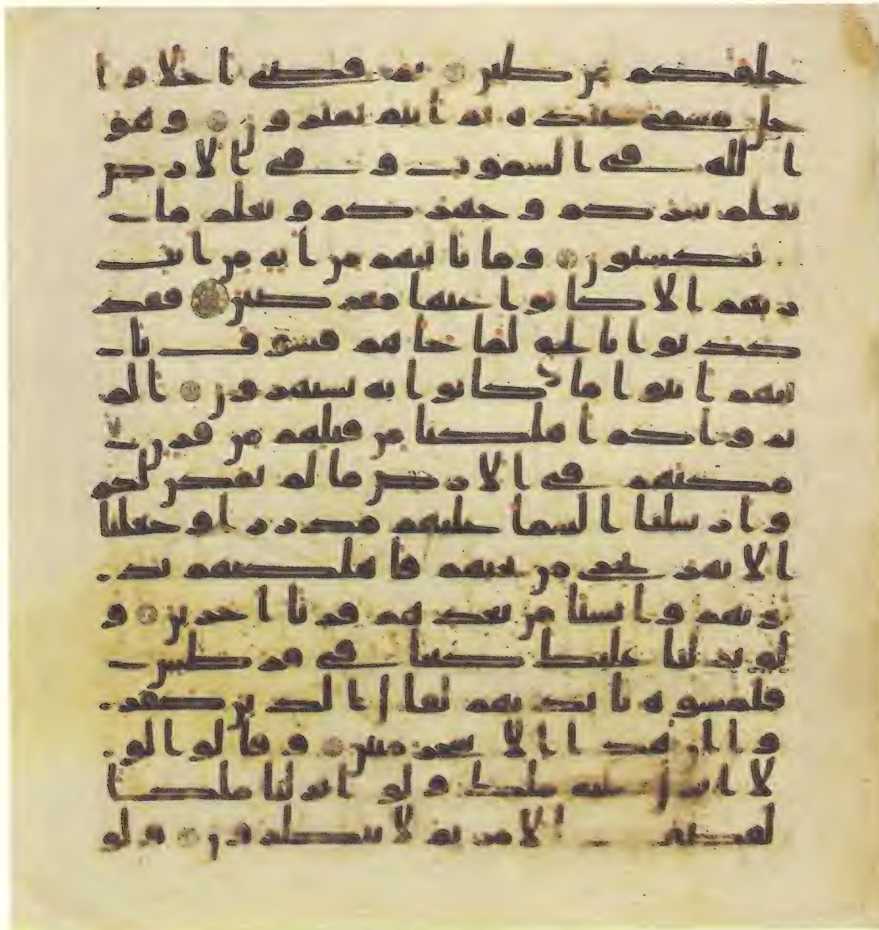 خلقكم من طين ثم قضى اجلا وا
جل مسمى عنده ثم انتم تمترون وهو
الله في السموت وفي الارض
يعلم سركم وجهركم ويعلم ما
تكسبون وما تاتيهم من ايه من ايت
ربهم الا كانوا عنها معرضين فقد
كذبوا بالحق لما جاهم فسوف يا
تيهم انبوا ما كانوا به يستهزون الم
يروا كم اهلكنا من قبلهم من قرن
مكنهم في الارض ما لم نمكن لكم
وارسلنا السما عليهم مدررا وجعلنا
الانهر تجرى من تحتهم فاهلكنهم بذ
نوبهم وانشانا من بعدهم قرنا اخرين و
لو نزلنا عليك كتبا في قرطس
فلمسوه بايديهم لقال الذين كفر
وا ان هذا الا سحر مبين وقالوا لو
لا انزل عليه ملك ولو انزلنا ملكا
لقضى الامر ثم لا ينظرون ولو